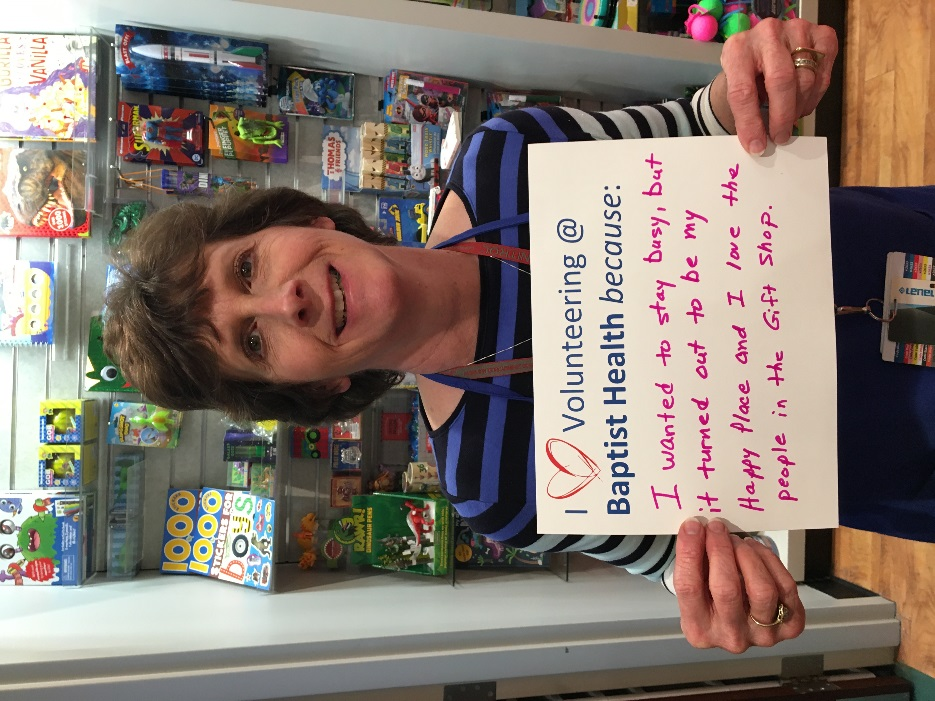 I Volunteering @
Baptist Health because:
I wanted to stay busy, but
it turned out to be my
Happy Place and I love the
people in the Gift Shop.
GORILLA
LOVES
VANILLA
SUPERMAN
THOMAS
& FRIENDS
1000
1000
STICKERS FOR
boys
RAAR!
DINOSAUR PENS